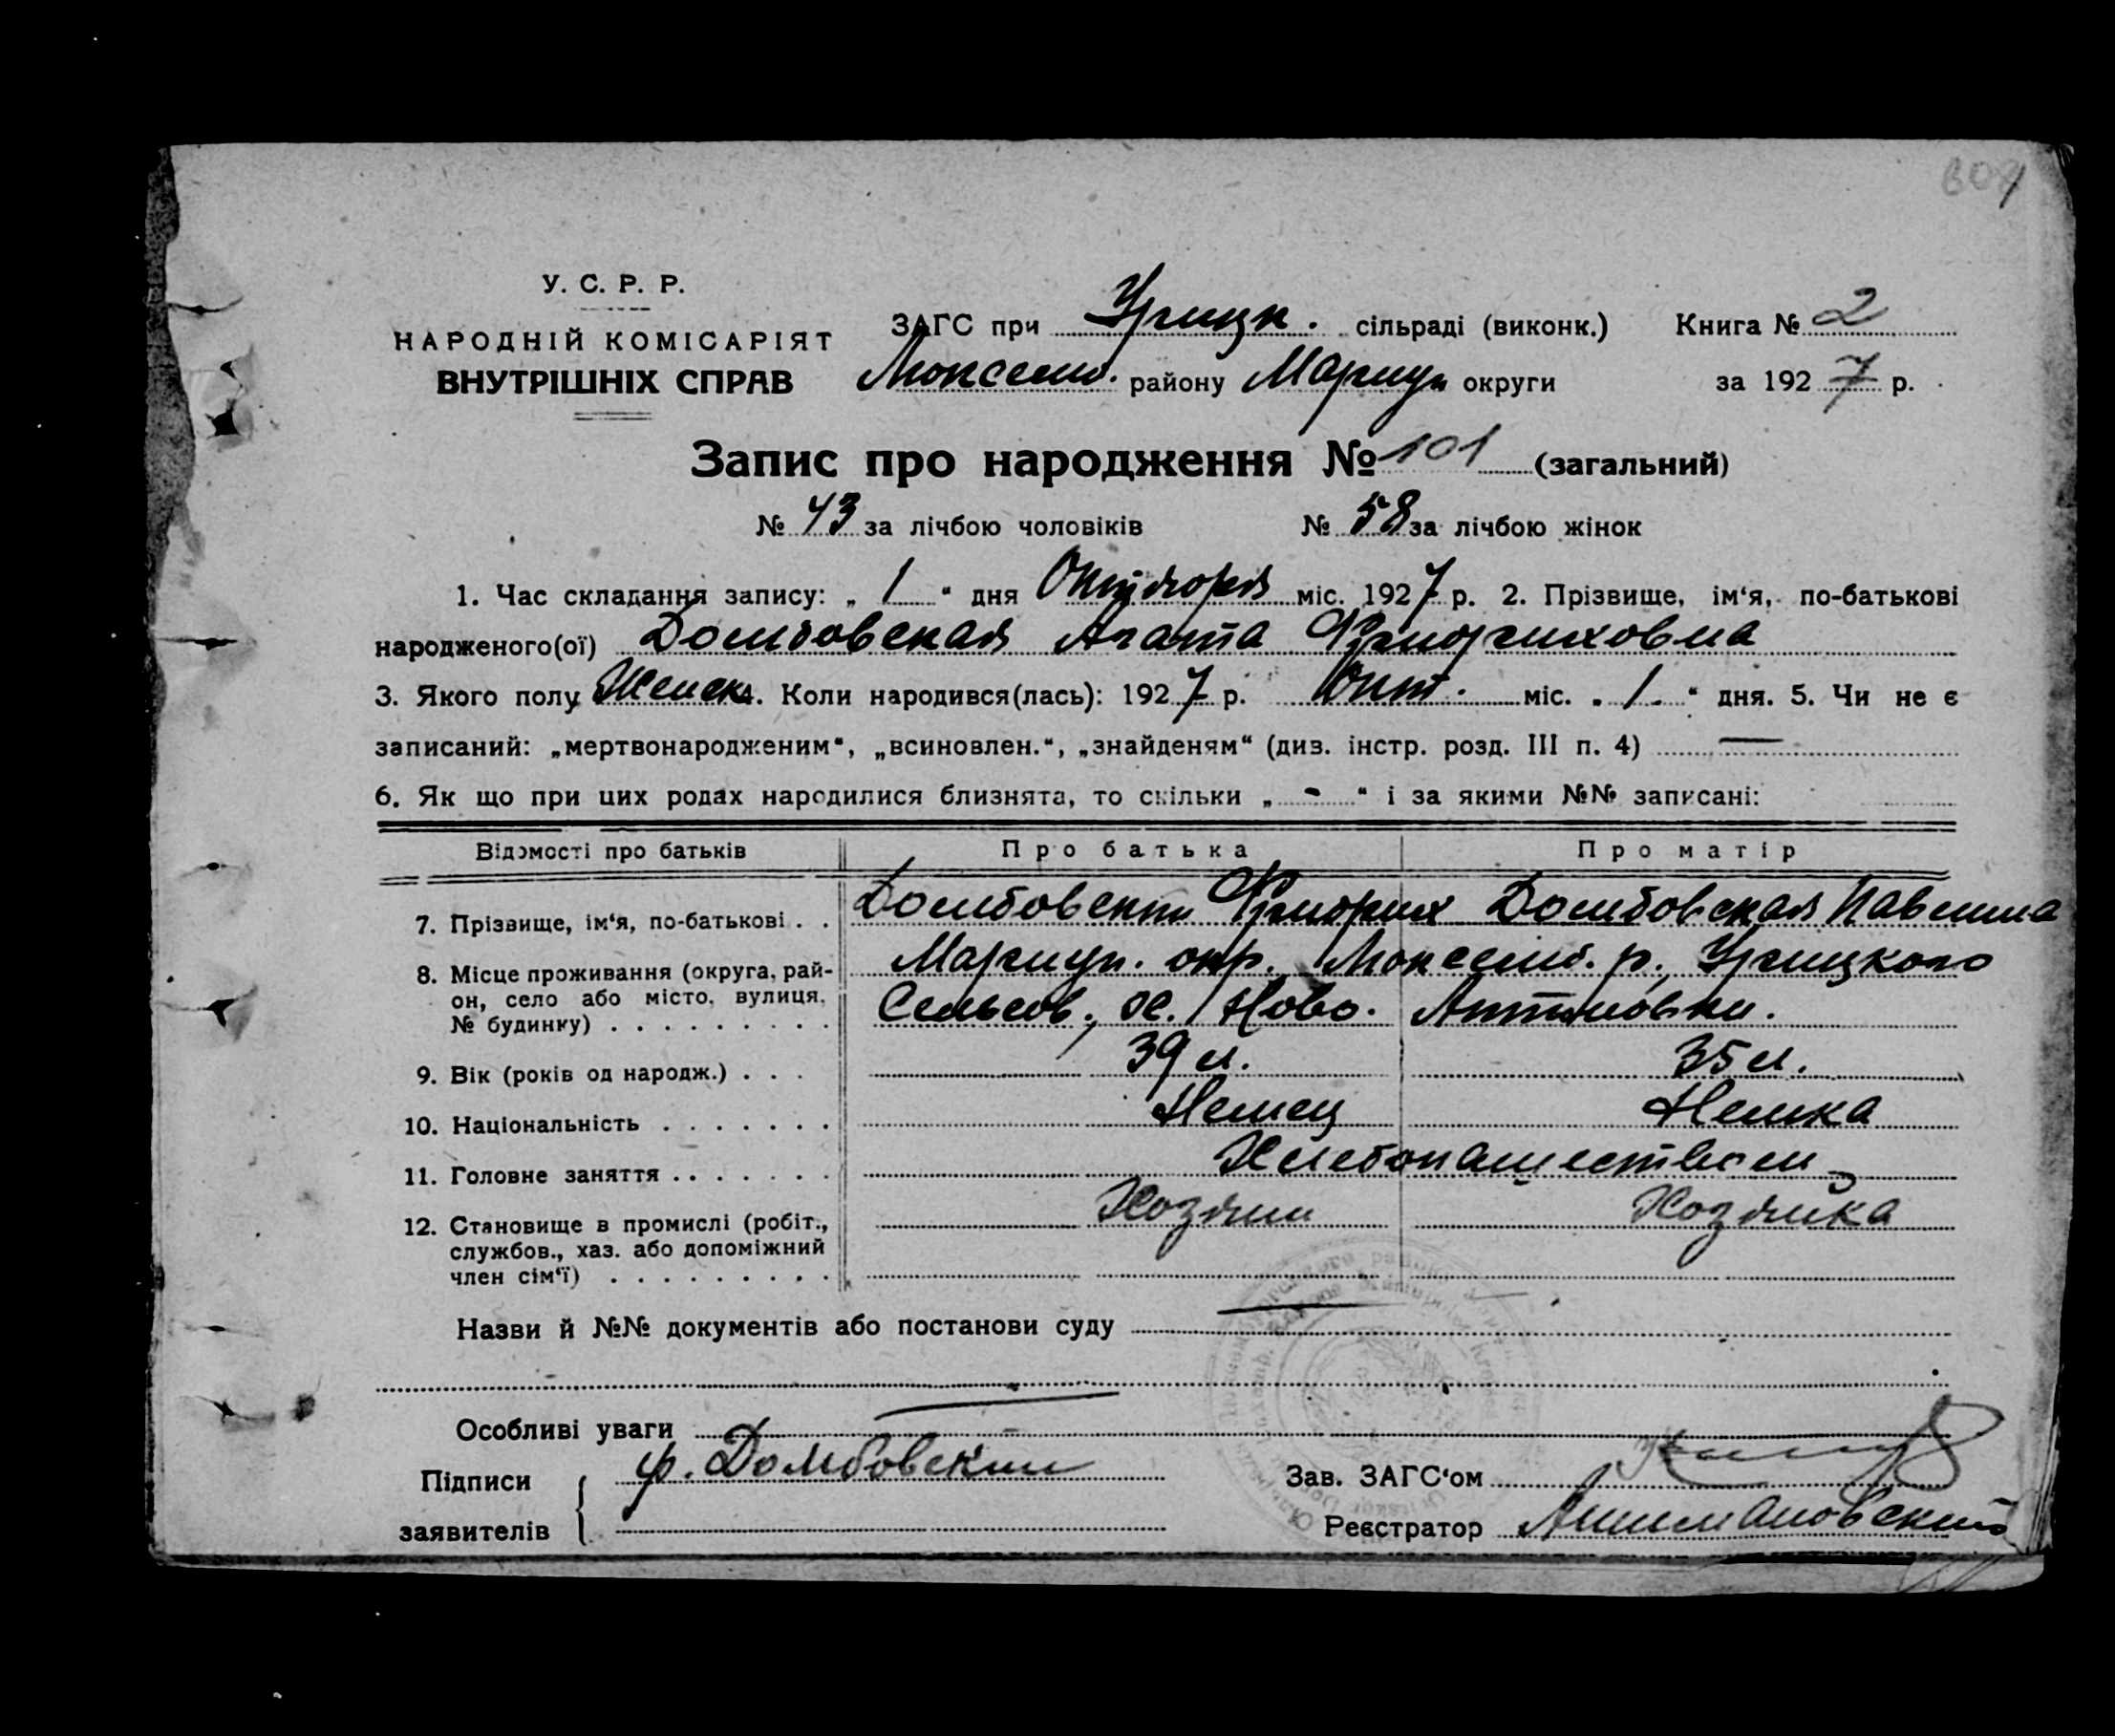 У. С. Р. Р.
НАРОДНІЙ КОМІСАРІЯТ
ВНУТРІШНІХ СПРАВ
ЗАГС при Урицк. сільраді (виконк.) Книга № 2
Люксемб. району Мариуп округи за 1927 р.
Запис про народження № 101 (загальний)
№ 43 за лічбою чоловіків № 58 за лічбою жінок
1. Час складання запису: „ 1 “ дня Октяоря міс. 1927 р. 2. Прізвище, ім‘я, по-батькові
народженого(ої) Домбовская Агата Фридриховна
3. Якого полу Женск. Коли народився(лась): 1927 р. Окт. міс. „ 1 “ дня. 5. Чи не є
записаний: „мертвонародженим“, „всиновлен.“, „знайденям“ (див. інстр. розд. III п. 4) —
6. Як що при цих родах народилися близнята, то скільки „ - “ і за якими №№ записані:
Відомості про батьків Про батька Про матір
7. Прізвище, ім‘я, по-батькові . . Домбовский Фридрих Домбовская Павлина
8. Місце проживання (округа, рай- Мариуп. окр., Люксемб. р., Урицкого
он, село або місто, вулиця, Сельсов., х. Ново.
№ будинку) . . . . . . . . .
9. Вік (років од народж.) . . . 39 л. 35 л.
10. Національність . . . . . . . Немец Немка
11. Головне заняття . . . . . . . Хлебопашеством
12. Становище в промислі (робіт., Хозяин Хозяйка
службов., хаз. або допоміжний
член сім‘ї) . . . . . . . . .
Назви й №№ документів або постанови суду —
Особливі уваги —
Підписи ф. Домбовский Зав. ЗАГС‘ом
заявителів Реєстратор